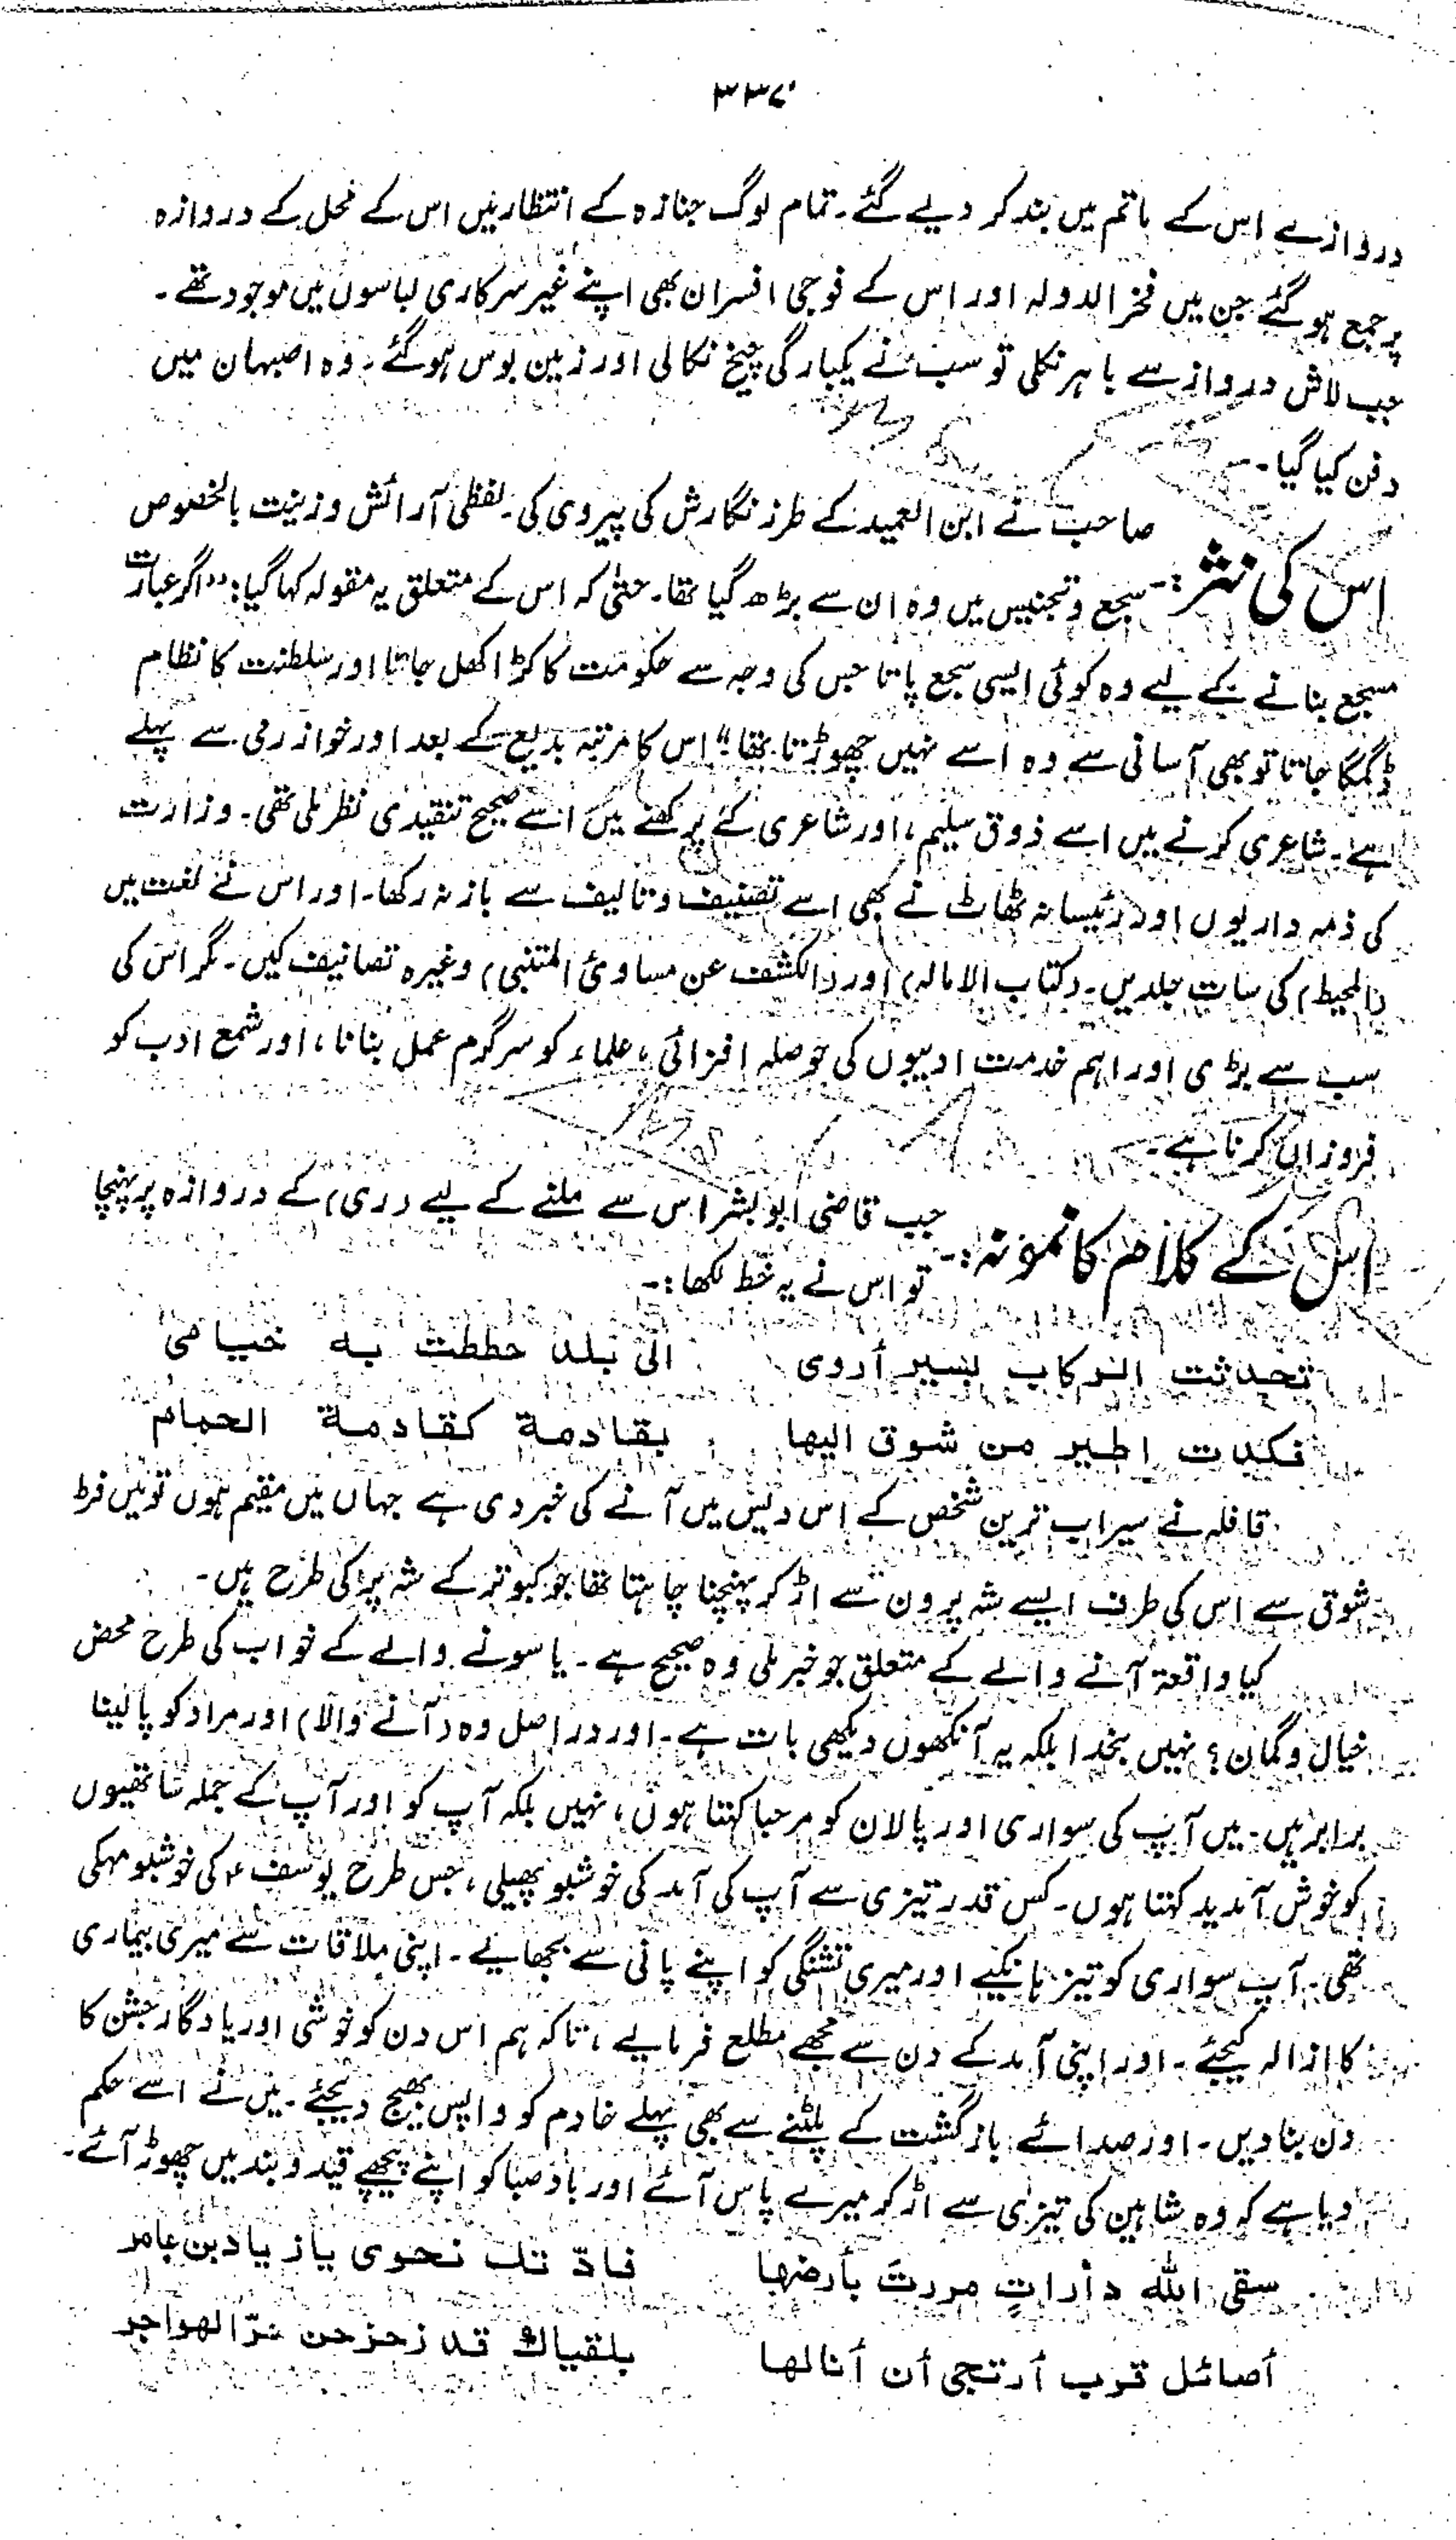 ۳۳۷
دروازے اس کے ماتم میں بند کر دیے گئے۔ تمام لوگ جنازہ کے انتظار میں اس کے محل کے دروازہ
پر جمع ہو گئے جن میں فخر الدولہ اور اس کے فوجی افسران بھی اپنے غیر سرکاری لباسوں میں موجود تھے۔
جب لاش دروازے سے باہر نکلی تو سب نے یکبارگی چیخ نکالی اور زمین بوس ہو گئے۔ وہ اصبہان میں
دفن کیا گیا۔
اس کی نثر:- صاحب نے ابن العمید کے طرز نگارش کی پیروی کی۔ لفظی آرائش و زینت بالخصوص
سجع و تجنیس میں وہ ان سے بڑھ گیا تھا۔ حتیٰ کہ اس کے متعلق یہ مقولہ کہا گیا: "اگر عبارت
مسجع بنانے کے لیے وہ کوئی ایسی سجع پاتا جس کی وجہ سے حکومت کا کڑا کھل جاتا اور سلطنت کا نظام
ڈگمگا جاتا تو بھی آسانی سے وہ اسے نہیں چھوڑتا تھا" اس کا مرتبہ بدیع کے بعد اور خوارزمی سے پہلے
ہے۔ شاعری کرنے میں اسے ذوق سلیم، اور شاعری کے پرکھنے میں اسے صحیح تنقیدی نظر ملی تھی۔ وزارت
کی ذمہ داریوں اور رئیسانہ ٹھاٹ نے بھی اسے تصنیف و تالیف سے باز نہ رکھا۔ اور اس نے لغت میں
(المحیط) کی سات جلدیں۔ (کتاب الامالہ) اور (الکشف عن مساوئ المتنبی) وغیرہ تصانیف کیں۔ مگر اس کی
سب سے بڑی اور اہم خدمت ادیبوں کی حوصلہ افزائی، علماء کو سرگرم عمل بنانا، اور شمع ادب کو
فروزاں کرنا ہے۔
اس کے کلام کا نمونہ:- جب قاضی ابو بشر اس سے ملنے کے لیے (ری) کے دروازہ پر پہنچا
تو اس نے یہ خط لکھا:-
تحدثت الركاب بسير أروى الى بلد حططت به خيامى
فكدت اطير من شوق اليها بقادمة كقادمة الحمام
قافلہ نے سیراب ترین شخص کے اس دیس میں آنے کی خبر دی ہے جہاں میں مقیم ہوں تو میں فرط
شوق سے اس کی طرف ایسے شہ پروں سے اڑ کر پہنچنا چاہتا تھا جو کبوتر کے شہ پر کی طرح ہیں۔
کیا واقعۃ آنے والے کے متعلق جو خبر ملی وہ صحیح ہے۔ یا سونے والے کے خواب کی طرح محض
خیال و گمان؟ نہیں بخدا بلکہ یہ آنکھوں دیکھی بات ہے۔ اور دراصل وہ (آنے والا) اور مراد کو پا لینا
برابر ہیں۔ میں آپ کی سواری اور پالان کو مرحبا کہتا ہوں، نہیں بلکہ آپ کو اور آپ کے جملہ ساتھیوں
کو خوش آمدید کہتا ہوں۔ کس قدر تیزی سے آپ کی آمد کی خوشبو پھیلی، جس طرح یوسفؑ کی خوشبو مہکی
تھی۔ آپ سواری کو تیز ہانکیے اور میری تشنگی کو اپنے پانی سے بجھایے۔ اپنی ملاقات سے میری بیماری
کا ازالہ کیجئے۔ اور اپنی آمد کے دن سے مجھے مطلع فرمایے، تاکہ ہم اس دن کو خوشی اور یادگار جشن کا
دن بنا دیں۔ اور صدائے بازگشت کے پلٹنے سے بھی پہلے خادم کو واپس بھیج دیجئے۔ میں نے اسے حکم
دیا ہے کہ وہ شاہین کی تیزی سے اڑ کر میرے پاس آئے اور باد صبا کو اپنے پیچھے قید و بند میں چھوڑ آئے۔
سقى الله دأراتٍ مررتَ بأرضها فادّ تك نحوى يازيادبن عامر
أصائل قرب أرتجى أن أنالها بلقياك قد زحزحن حرّ الهواجر